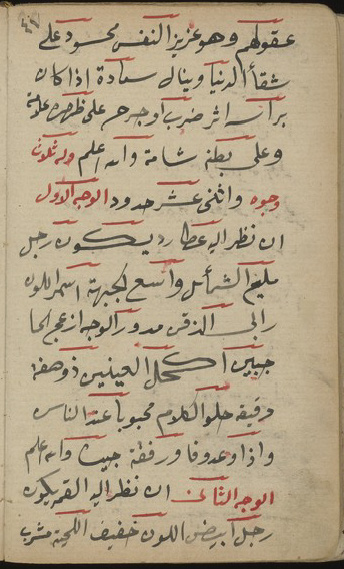 عقولهم وهو عزيز النفس محسود على
شقاء الدنيا وينال سعادة اذا كان
براسه اثر ضرب او جرح على ظهره علامة
وعلى بطنه شامة والله اعلم وله ثلاث
وجوه واثنى عشر حدود الوجه الاول
ان نظر اليه عطارد يكون رجل
مليح الشمائل واسع الجبهة اسمر اللون
الذقن مدور الوجه ازعج الحا
جبين اكحل العينين ذو
رقيقة حلو الكلام محبوبا عند الناس
واذا وعد وفا والله اعلم
الوجه الثانى ان نظر اليه القمر يكون
رجل ابيض اللون خفيف اللحية مشرب